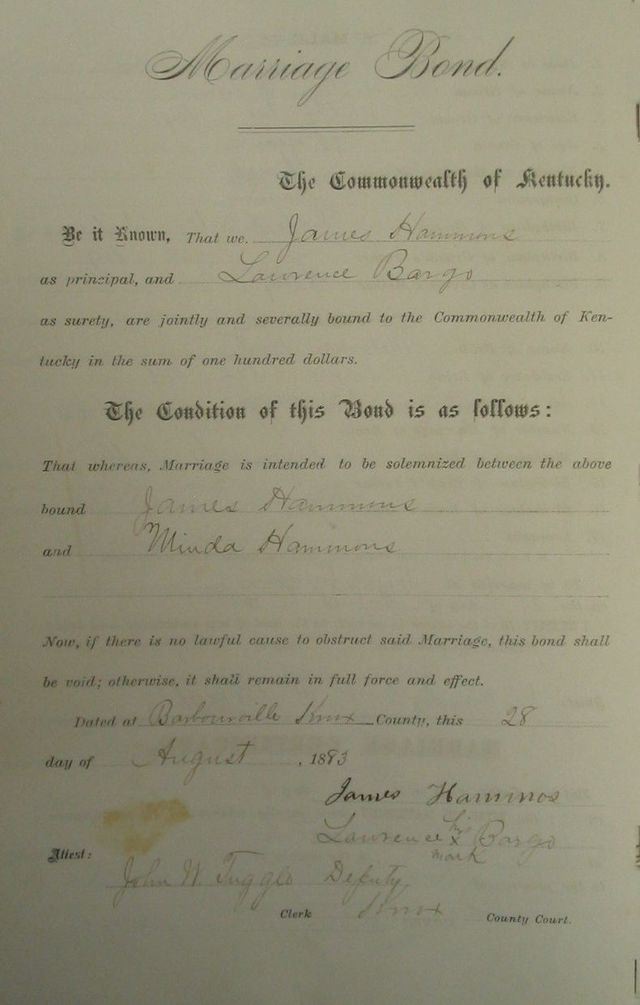 Marriage Bond.
The Commonwealth of Kentucky.
Be it Known, That we, James Hammons
as principal, and Lawrence Bargo
as surety, are jointly and severally bound to the Commonwealth of Ken-
tucky in the sum of one hundred dollars.
The Condition of this Bond is as follows:
That whereas, Marriage is intended to be solemnized between the above
bound James Hammons
and Minda Hammons
Now, if there is no lawful cause to obstruct said Marriage, this bond shall
be void; otherwise, it shall remain in full force and effect.
Dated at Barbourville Knox County, this 28
day of August, 1883
James Hammos
Lawrence his x Bargo
mark
Attest:
John W. Tugglo Deputy
Clerk Knox County Court.